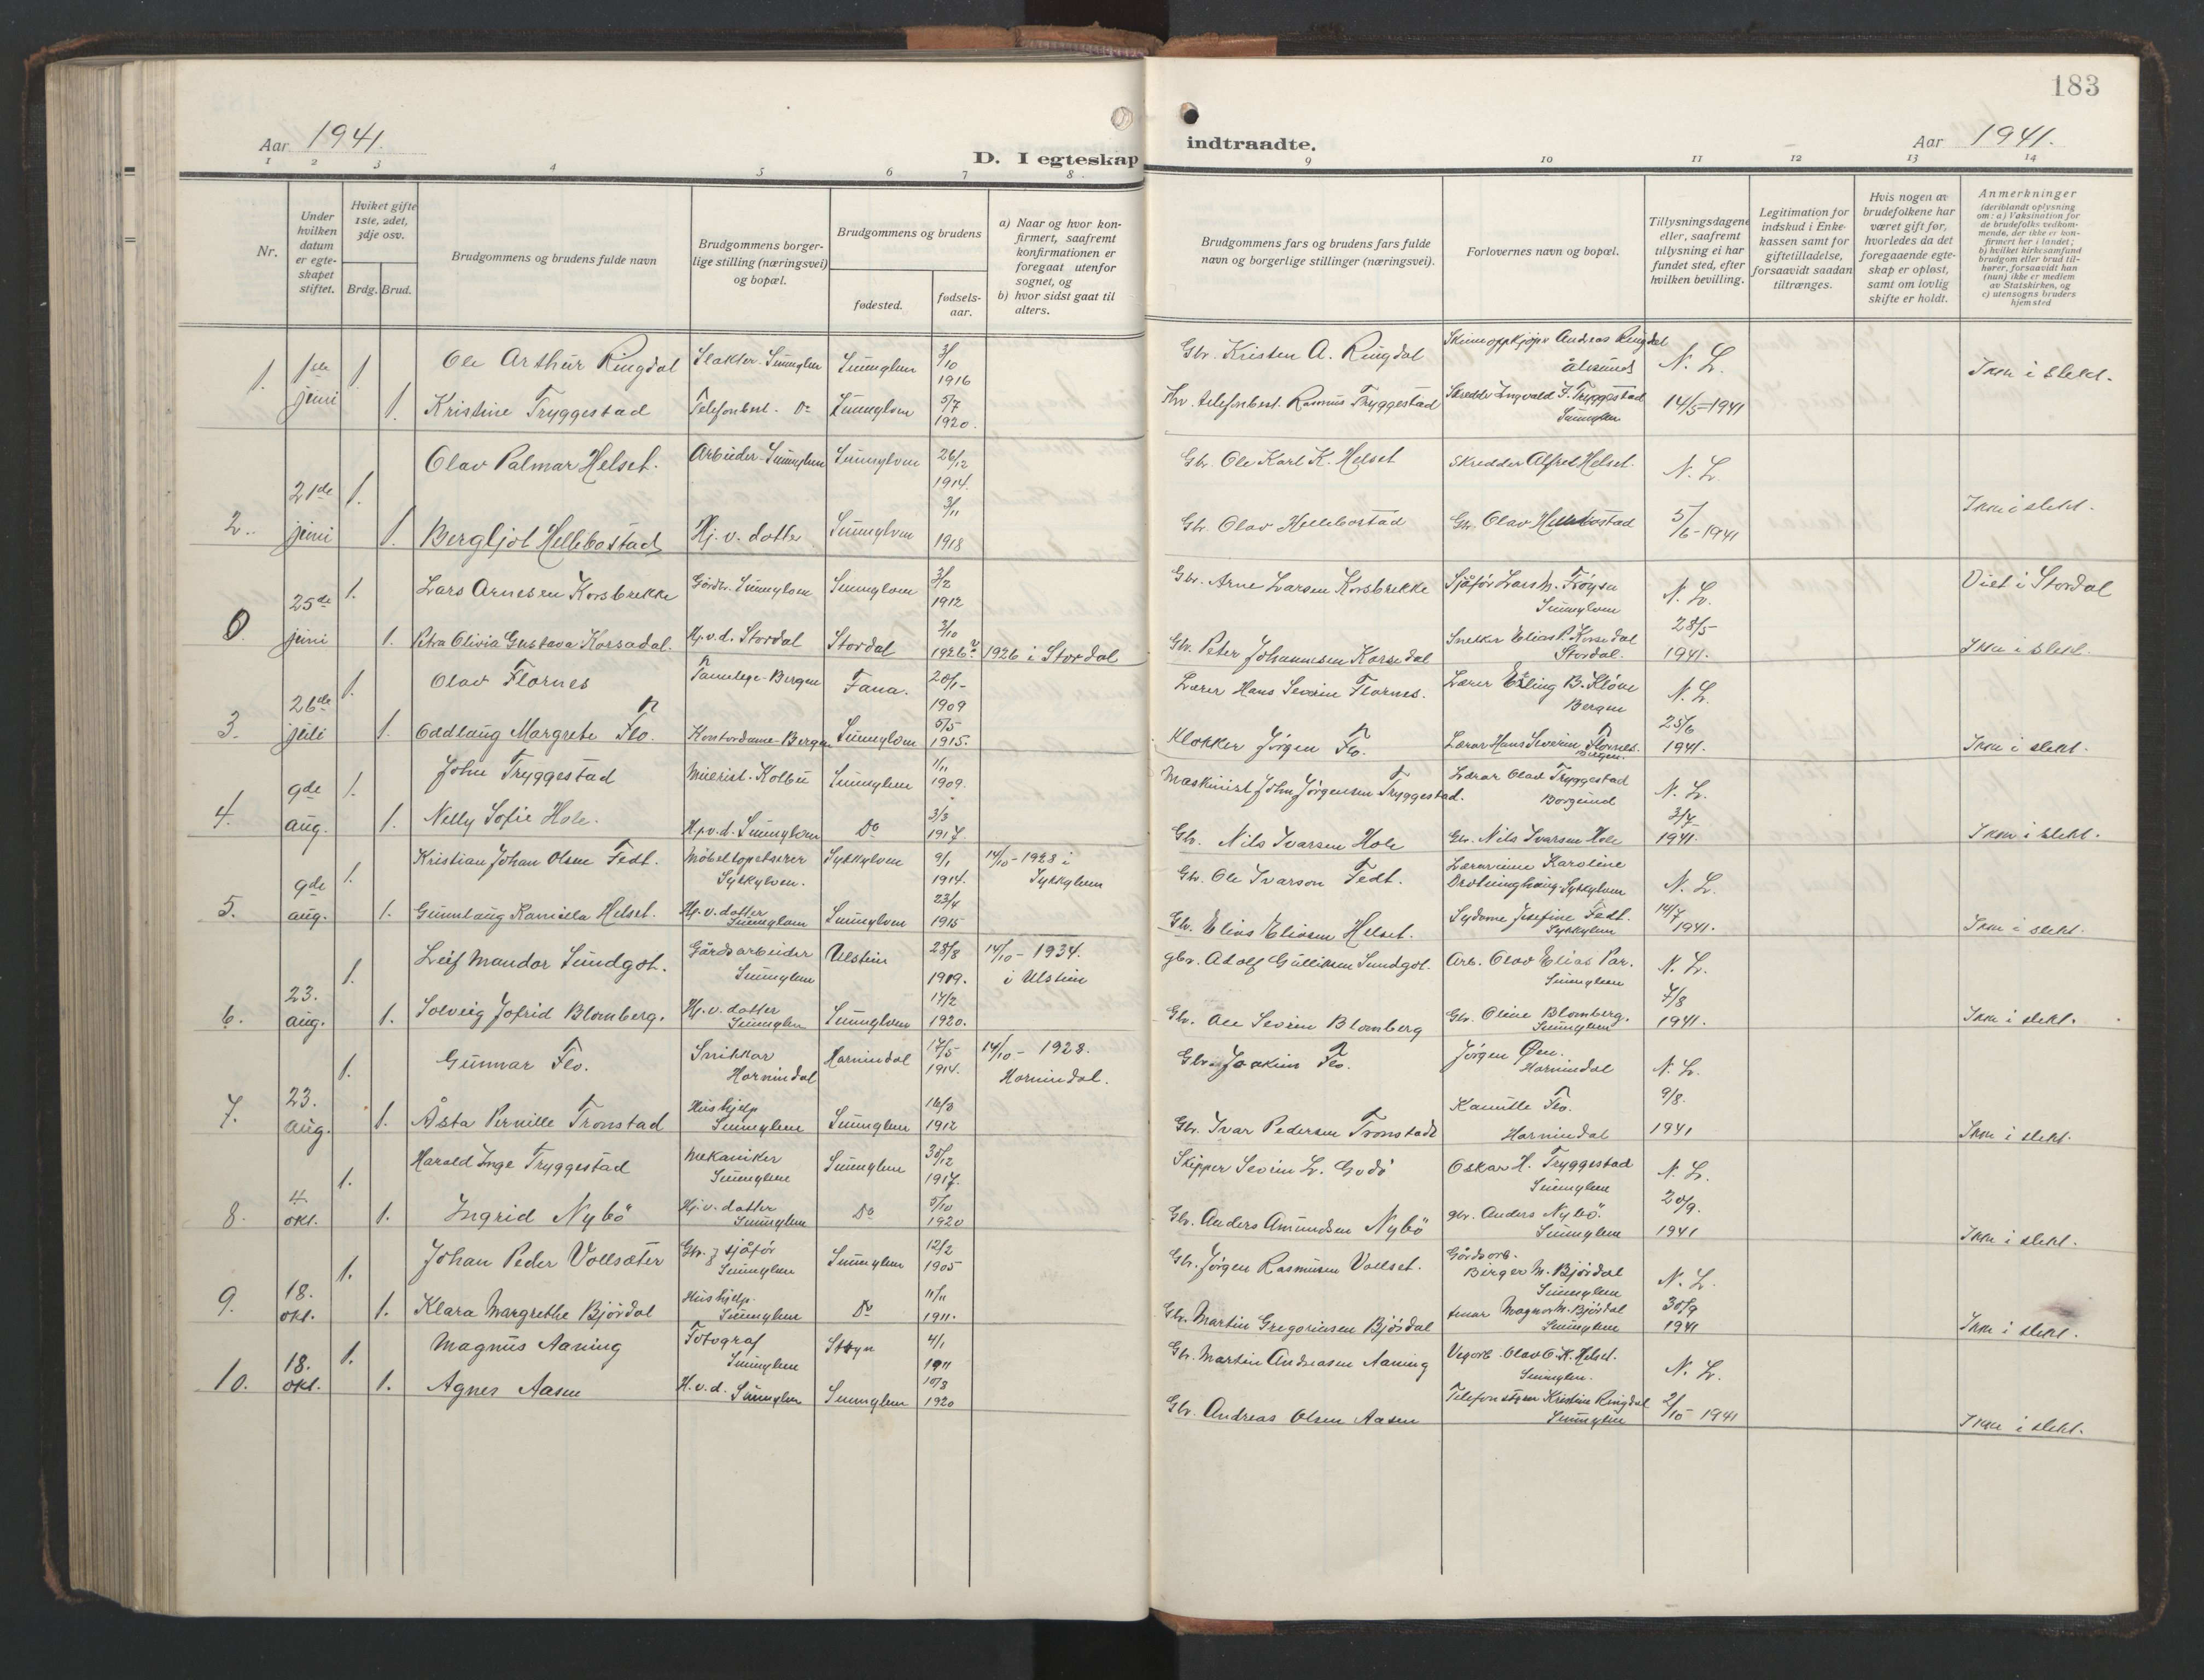 183
Aar 1941.
D. I egteskap
indtraadte.
Aar 1941.
1 2 3 4 5 6 7 8
9 10 11 12 13 14
Nr.
Under hvilken datum er egte-skapet stiftet.
Hviket gifte 1ste, 2det, 3dje osv.
Brdg. Brud.
Brudgommens og brudens fulde navn
Brudgommens borger-lige stilling (næringsvei) og bopæl.
Brudgommens og brudens
fødested.
fødsels-aar.
a) Naar og hvor kon-firmert, saafremt konfirmationen er foregaat utenfor sognet, og
b) hvor sidst gaat til alters.
Brudgommens fars og brudens fars fulde navn og borgerlige stillinger (næringsvei).
Forlovernes navn og bopæl.
Tillysningsdagene eller, saafremt tillysning ei har fundet sted, efter hvilken bevilling.
Legitimation for indskud i Enke-kassen samt for giftetilladelse, forsaavidt saadan tiltrænges.
Hvis nogen av brudefolkene har været gift før, hvorledes da det foregaaende egte-skap er opløst, samt om lovlig skifte er holdt.
Anmerkninger
(deriblandt oplysning om: a) Vaksination for de brudefolks vedkom-mende, der ikke er kon-firmert her i landet; b) hvilket kirkesamfund brudgom eller brud til-hører, forsaavidt han (hun) ikke er medlem av Statskirken, og c) utensogns bruders hjemsted
1. 1ste juni 1. Ole Arthur Ringdal Slakter-Sunnylven Sunnylven 3/10 1916 Gbr. Kristen A. Ringdal Skinnoppkjøper Andreas Ringdal Ålesund N. L. Ikke i slekt.
1. Kristine Tryggestad Telefonbest. Do Sunnylven 5/7 1920. Hv. telefonbest. Rasmus Tryggestad Skredder Ingvald J. Tryggestad Sunnylven 14/5-1941
2. 21de juni 1. Olav Palmar Helset. Arbeider-Sunnylven Sunnylven 26/12 1914. Gbr. Ole Karl K. Helset Skredder Alfred Helset. N. L. Ikke i slekt.
1. Bergljot Hellebostad Hj. v. datter Sunnylven 3/11 1918 Gbr. Olav Hellebostad Gbr. Olav Hellebostad 5/6-1941
0. 25de juni 1. Lars Arnesen Korsbrekke Gårdbr. Sunnylven Sunnylven 3/2 1912 Gbr. Arne Larsen Korsbrekke Sjåfør Lars M. Frøysa Sunnylven N. L. Viet i Stordal
1. Petra Olivia Gustava Korsadal. Hj. v. d. Stordal Stordal 3/10 1926? 1926 i Stordal Gbr. Peter Johannesen Korsedal Snekker Elias P. Korsedal Stordal. 28/5 1941. Ikke i slekt.
3. 26de juli 1. Olav Flornes Tannlege-Bergen Fana. 20/1- 1909 Lærer Hans Severin Flornes. Lærer Erling B. Kløve Bergen N. L.
1. Oddlaug Margrete Flo. Kontordame-Bergen Sunnylven 5/5 1915. Klokker Jørgen Flo. Lærer Hans Severin Flornes. Bergen. 25/6 1941. Ikke i slekt.
4. 9de aug. 1. John Tryggestad Meierist. Kolbu Sunnylven 1/11 1909. Maskinist John Jørgensen Tryggestad. Lærar Olav Tryggestad Borgund N. L.
1. Nelly Sofie Hole. Hj. v. d. Sunnylven Do 3/3 1917. Gbr. Nils Ivarsen Hole Gbr. Nils Ivarsen Hole 3/7 1941. Ikke i slekt.
5. 9de aug. 1. Kristian Johan Olsen Fedt. Møbeltapetserer Sykkylven. Sykkylven 9/1 1914. 14/10-1928 i Sykkylven Gbr. Ole Ivarson Fedt. Lærarinne Karoline Drotninghaug Sykkylven N. L.
1. Gunnlaug Kamilla Helset. Hj. v. datter Sunnylven Sunnylven 23/4 1915 Gbr. Elias Eliasen Helset. Sydame Josefine Fedt. Sykkylven 14/7 1941. Ikke i slekt.
6. 23. aug. 1. Leif Mandor Sundgot. Gårdsarbeider Sunnylven Ulstein 28/8 1909. 14/10-1934. i Ulstein gbr. Adolf Gulliksen Sundgot. Arb. Olav Elias Par. Sunnylven N. L.
1. Solveig Jofrid Blomberg. Hj. v. datter Sunnylven Sunnylven 14/2 1920. Gbr. Ole Severin Blomberg Gbr. Oline Blomberg. Sunnylven 7/8 1941. Ikke i slekt.
7. 23. aug. 1. Gunnar Flo. Snikkar Hornindal Hornindal 17/5 1914. 14/10-1928. Hornindal. Gbr. Joakim Flo. Jørgen Øen. Hornindal N. L.
1. Åsta Pernille Tronstad Hushjelp Sunnylven Sunnylven 16/8 1912 Gbr. Ivar Pedersen Tronstad Kamille Flo. Hornindal 9/8. 1941 Ikke i slekt.
8. 4. okt. 1. Harald Inge Tryggestad Mekaniker Sunnylven Sunnylven 30/12 1917. Skipper Severin L. Godø Oskar H. Tryggestad Sunnylven N. L.
1. Ingrid Nybö Hj. v. datter Sunnylven Do 5/10 1920 Gbr. Anders Amundsen Nybö gbr. Anders Nybö. Sunnylven 20/9. 1941 Ikke i slekt.
9. 18. okt. 1. Johan Peder Vollsæter Gbr. & sjåfør Sunnylven Sunnylven 12/2 1905 Gbr. Jørgen Rasmusen Vollset. Gårdsarb. Birger M. Bjørdal Sunnylven N. L.
1. Klara Margrethe Bjørdal Hushjelp. Sunnylven Do 11/11 1911. Gbr. Martin Gregoriusen Bjørdal Magnor M. Bjørdal Sunnylven 30/9 1941 Ikke i slekt.
10. 18. okt. 1. Magnus Aaning Fotograf Sunnylven Stryn 4/1 1911 Gbr. Martin Andreasen Aaning Vegarb. Olav O. K. Helset. Sunnylven. N. L.
1. Agnes Aasen H. v. d. Sunnylven Sunnylven 10/3 1920 Gbr. Andreas Olsen Aasen Kristine Ringdal Sunnylven 2/10-1941 Ikke i slekt.